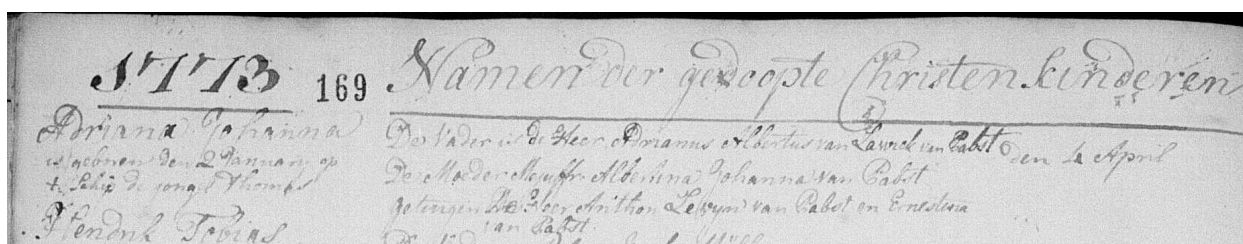 1773 169 Namen der gedoopte Christen kinderen
Adriana Johanna
is gebooren den 2 January op
t Schip de jonge Thomas
De Vader is de Heer Adrianus Albertus van Lawick van Pabst den 4 April
De Moeder Mejuffr. Albertina Johanna van Pabst
getuigen De Heer Anthon Lewyn van Pabst en Ernestina
van Pabst
Hendrik Tobias